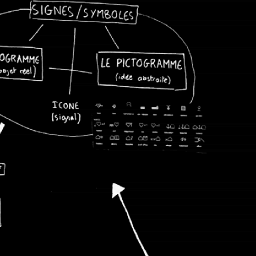 SIGNES/SYMBOLES
OGRAMME
(objet réel)
LE PICTOGRAMME
(idée abstraite)
ICONE
(signal)